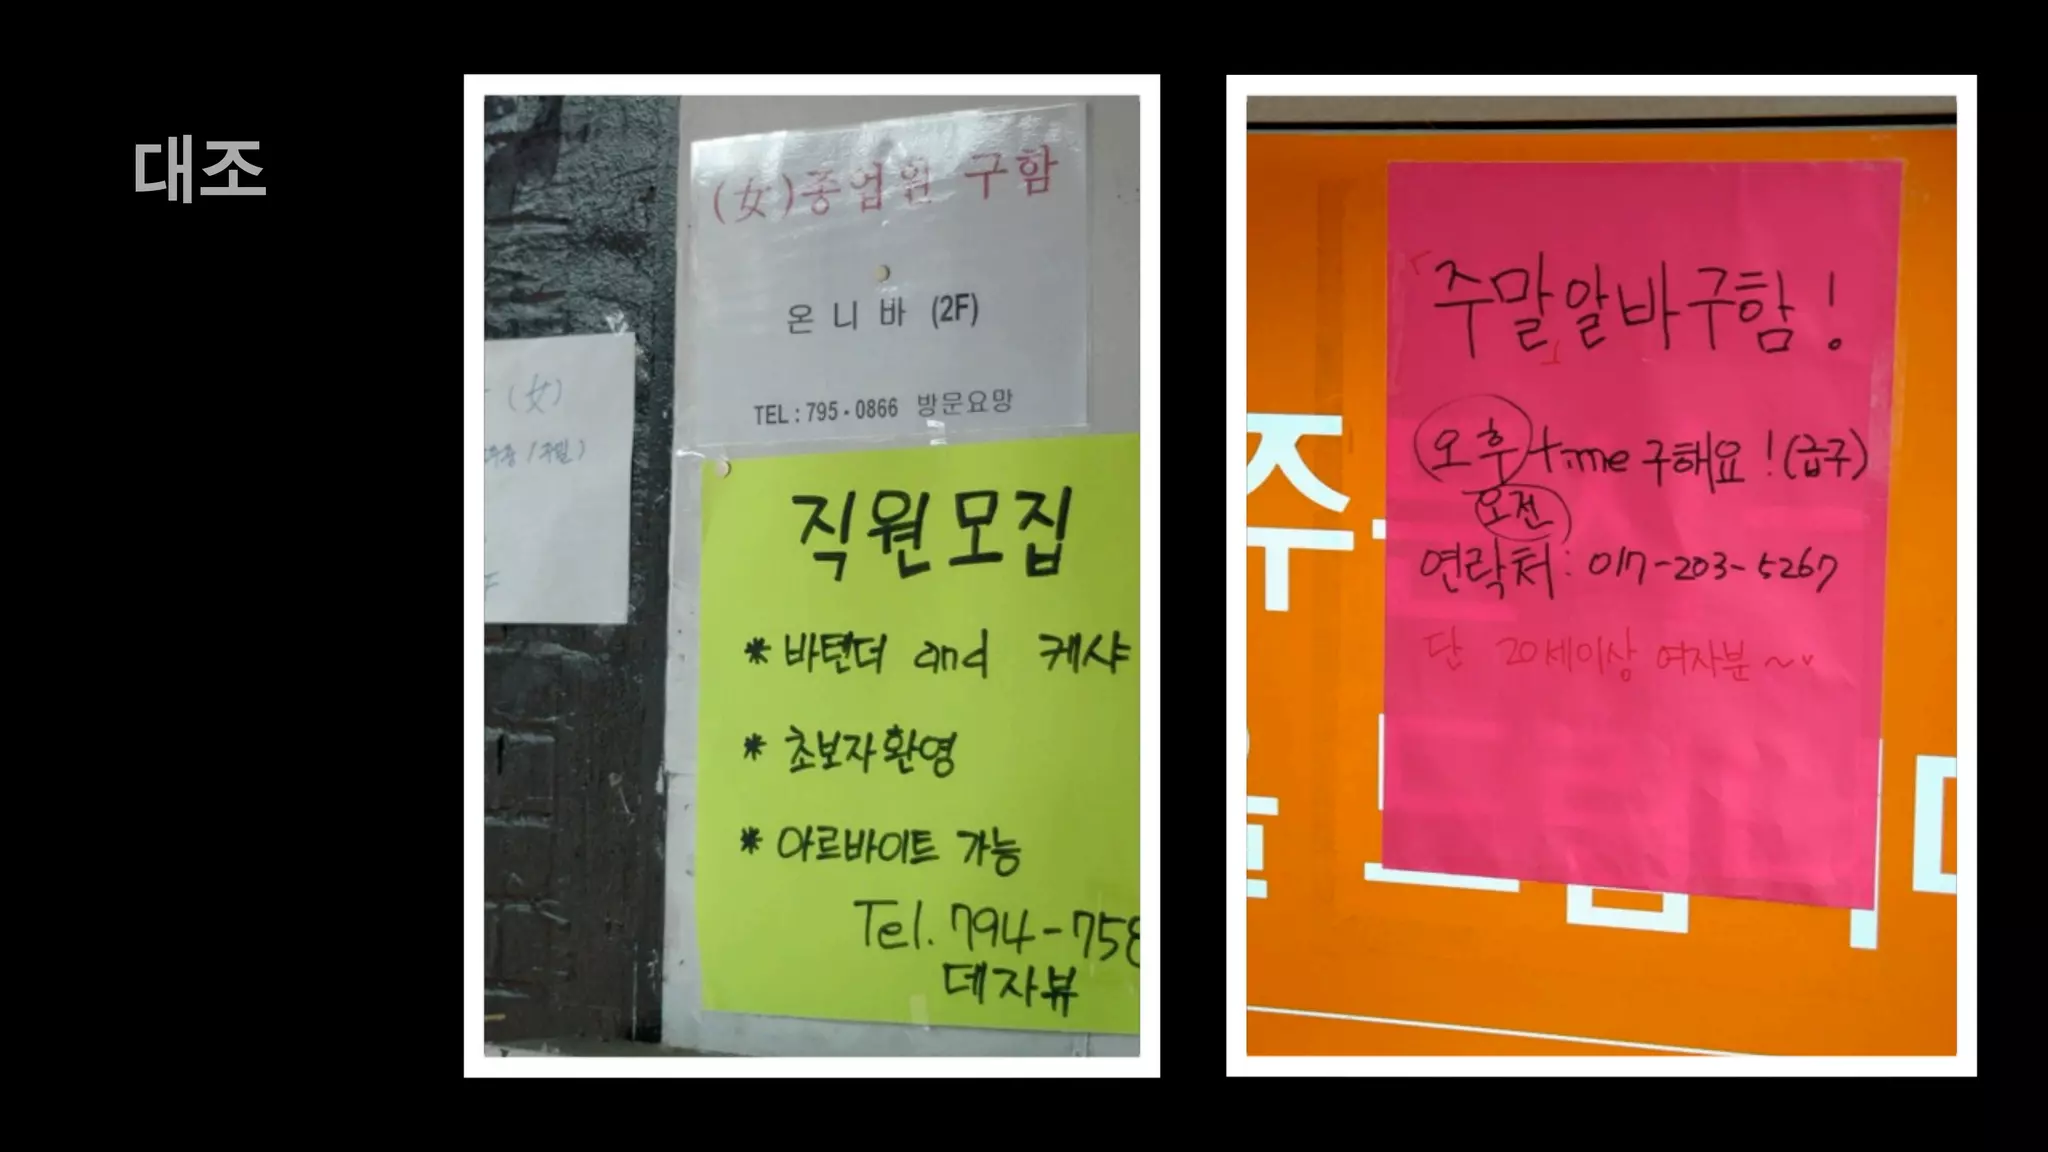 대조
(女)종업원 구함
온니바 (2F)
TEL : 795 - 0866 방문요망
(女)
직원모집
* 바텐더 and 캐샤
* 초보자환영
* 아르바이트 가능
Tel. 794-758
데자뷰
주말알바구함!
오후 time 구해요! (급구)
오전
연락처: 017-203-5267
단 20세이상 여자분~